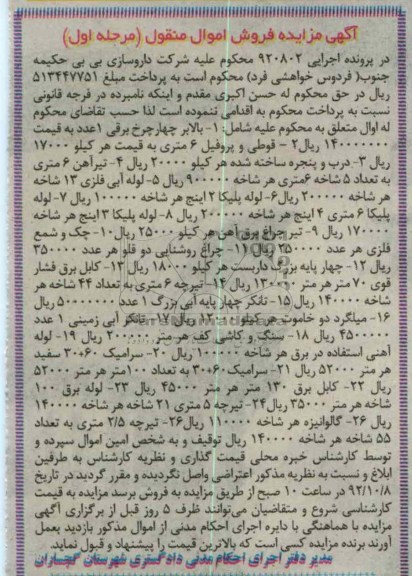 آگهی مزایده فروش اموال منقول (مرحله اول)
در پرونده اجرایی ۹۲۰۸۰۲ محکوم علیه شرکت داروسازی بی بی حکیمه
جنوب( فردوس خواهشی فرد) محکوم است به پرداخت مبلغ ۵۱۳۴۴۷۷۵۱
ریال در حق محکوم له حسن اکبری مقدم و اینکه نامبرده در فرجه قانونی
نسبت به پرداخت محکوم به اقدامی ننموده است لذا حسب تقاضای محکوم
له اوال متعلق به محکوم علیه شامل: ۱- بالابر چهارچرخ برقی ۱عدد به قیمت
۱۴۰۰۰۰۰۰۰ ریال۲ – قوطی و پروفیل ۶ متری به قیمت هر کیلو ۱۷۰۰۰
ریال ۳- درب و پنجره ساخته شده هر کیلو ۲۰۰۰۰ ریال ۴- تیرآهن ۶ متری
به تعداد ۵ شاخه ۶متری هر شاخه ۹۰۰۰۰۰ ریال ۵- لوله آبی فلزی ۱۳ شاخه
هر شاخه ۲۰۰۰۰۰ ریال۶- لوله پلیکا ۲ اینچ هر شاخه ۱۰۰۰۰۰ ریال ۷- لوله
پلیکا ۶ متری ۴ اینچ هر شاخه ۲۰۰۰۰۰ ریال ۸- لوله پلیکا ۳ اینچ هر شاخه
۱۷۰۰۰۰ ریال ۹- تیر چراغ برق آهن هر کیلو ۲۵۰۰۰ ریال۱۰- چک و شمع
فلزی هر عدد ۳۵۰۰۰۰ ریال ۱۱- چراغ روشنایی دو قلو هر عدد ۳۵۰۰۰۰
ریال ۱۲- چهار پایه بزرگ داربست هر کیلو ۱۸۰۰۰ ریال ۱۳- کابل برق فشار
قوی ۷۰ متر هر متر ۱۳۰۰۰۰ ریال ۱۴- تیرچه ۶ متری به تعداد ۴۴ شاخه هر
شاخه ۱۴۰۰۰۰ ریال ۱۵- تانکر چهار پایه آبی بزرگ ۱ عدد ۵۰۰۰۰۰۰۰ ریال
۱۶- میلگرد دو خاموت هر کیلو ۱۲۰۰۰ ریال ۱۷- تانکر آبی زمینی ۱ عدد
۴۵۰۰۰۰۰ ریال ۱۸- سنگ و کاشی کف هر متر ۲۰۰۰۰۰ ریال ۱۹- لوله
آهنی استفاده در برق هر شاخه ۱۰۰۰۰۰ ریال ۲۰- سرامیک ۶۰*۳۰ سفید
هر متر ۵۲۰۰۰ ریال ۲۱- سرامیک۶۰*۳۰ به تعداد ۱۰۰متر هر متر ۵۲۰۰۰
ریال ۲۲- کابل برق ۱۳۰ متر هر متر ۴۵۰۰۰ ریال ۲۳- لوله برق ۱۰۰
شاخه هر متر ۳۵۰۰۰ ریال۲۴- تیرچه ۵ متری ۲۱ شاخه هر شاخه ۱۴۰۰۰۰
ریال ۲۶- گالوانیزه هر شاخه ۱۱۰۰۰۰ ریال۲۶- تیرچه ۲/۵ متری به تعداد
۵۵ شاخه هر شاخه ۱۴۰۰۰۰ ریال توقیف و به شخص امین اموال سپرده و
توسط کارشناس خبره محلی قیمت گذاری و نظریه کارشناس به طرفین
ابلاغ و نسبت به نظریه مذکور اعتراضی واصل نگردیده و مقرر گردید در تاریخ
۹۲/۱۰/۸ در ساعت ۱۰ صبح از طریق مزایده به فروش برسد مزایده به قیمت
کارشناسی شروع و متقاضیان می‌توانند ظرف ۵ روز قبل از برگزاری آگهی
مزایده با هماهنگی با دایره اجرای احکام مدنی از اموال مذکور بازدید بعمل
آورند برنده مزایده کسی است که بالاترین قیمت را پیشنهاد و قبول نماید.
مدیر دفتر اجرای احکام مدنی دادگستری شهرستان گچساران